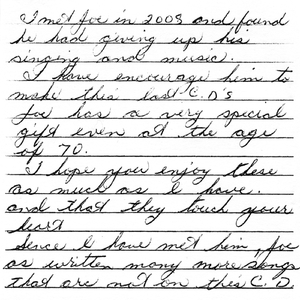 I met Joe in 2003 and found
he had giving up his
singing and music.
I have encourage him to
make this last C.D's
Joe has a very special
gift even at the age
of 70.
I hope you enjoy these
as much as I have.
and that they touch your
heart
Since I have met him, Joe
as written many more songs
that are not on this C.D.